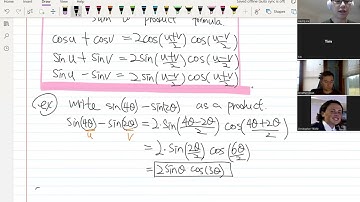 sum to product formula
cosu + cosv = 2cos(u+v/2)cos(u-v/2)
sinu + sinv = 2sin(u+v/2)cos(u-v/2)
sinu - sinv = 2sin(u-v/2)cos(u+v/2)
ex) write sin(4θ) - sin(2θ) as a product.
sin(4θ) - sin(2θ) = 2·sin(4θ-2θ/2) cos(4θ+2θ/2)
u v
= 2·sin(2θ/2) cos(6θ/2)
= 2sinθ cos(3θ)